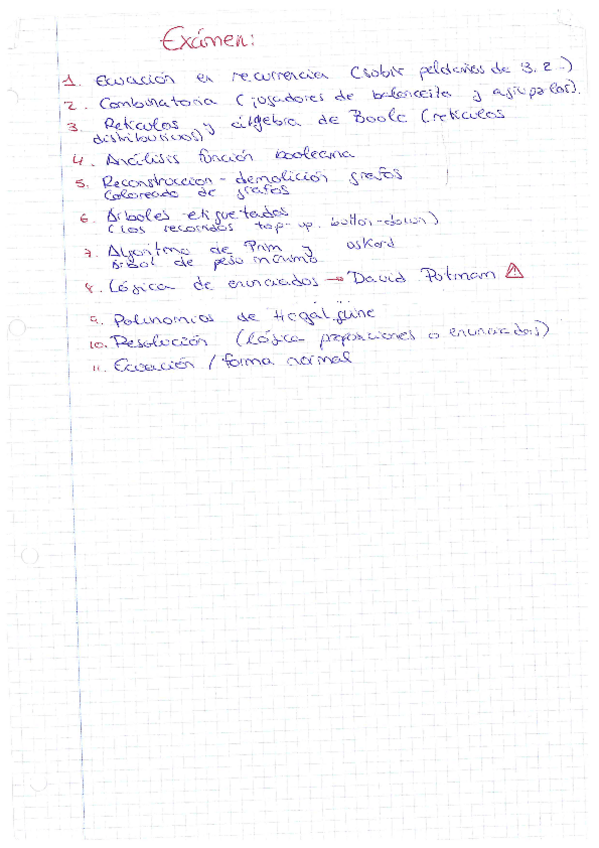 Exámen:
1. Ecuación en recurrencia (subir peldaños de 3, 2..)
2. Combinatoria (jugadores de baloncesto y agruparlos).
3. Retículos y álgebra de Boole (retículos
distributivos)
4. Análisis función booleana
5. Reconstrucción - demolición grafos
Coloreado de grafos
6. Árboles etiquetados
(los recorridos top-up, button-down)
7. Algoritmo de Prim y
árbol de peso mínimo
8. Lógica de enunciados → David Putman
9. Polinomios de
10. Resolución (lógica proposiciones o enunciados)
11. Ecuación / forma normal